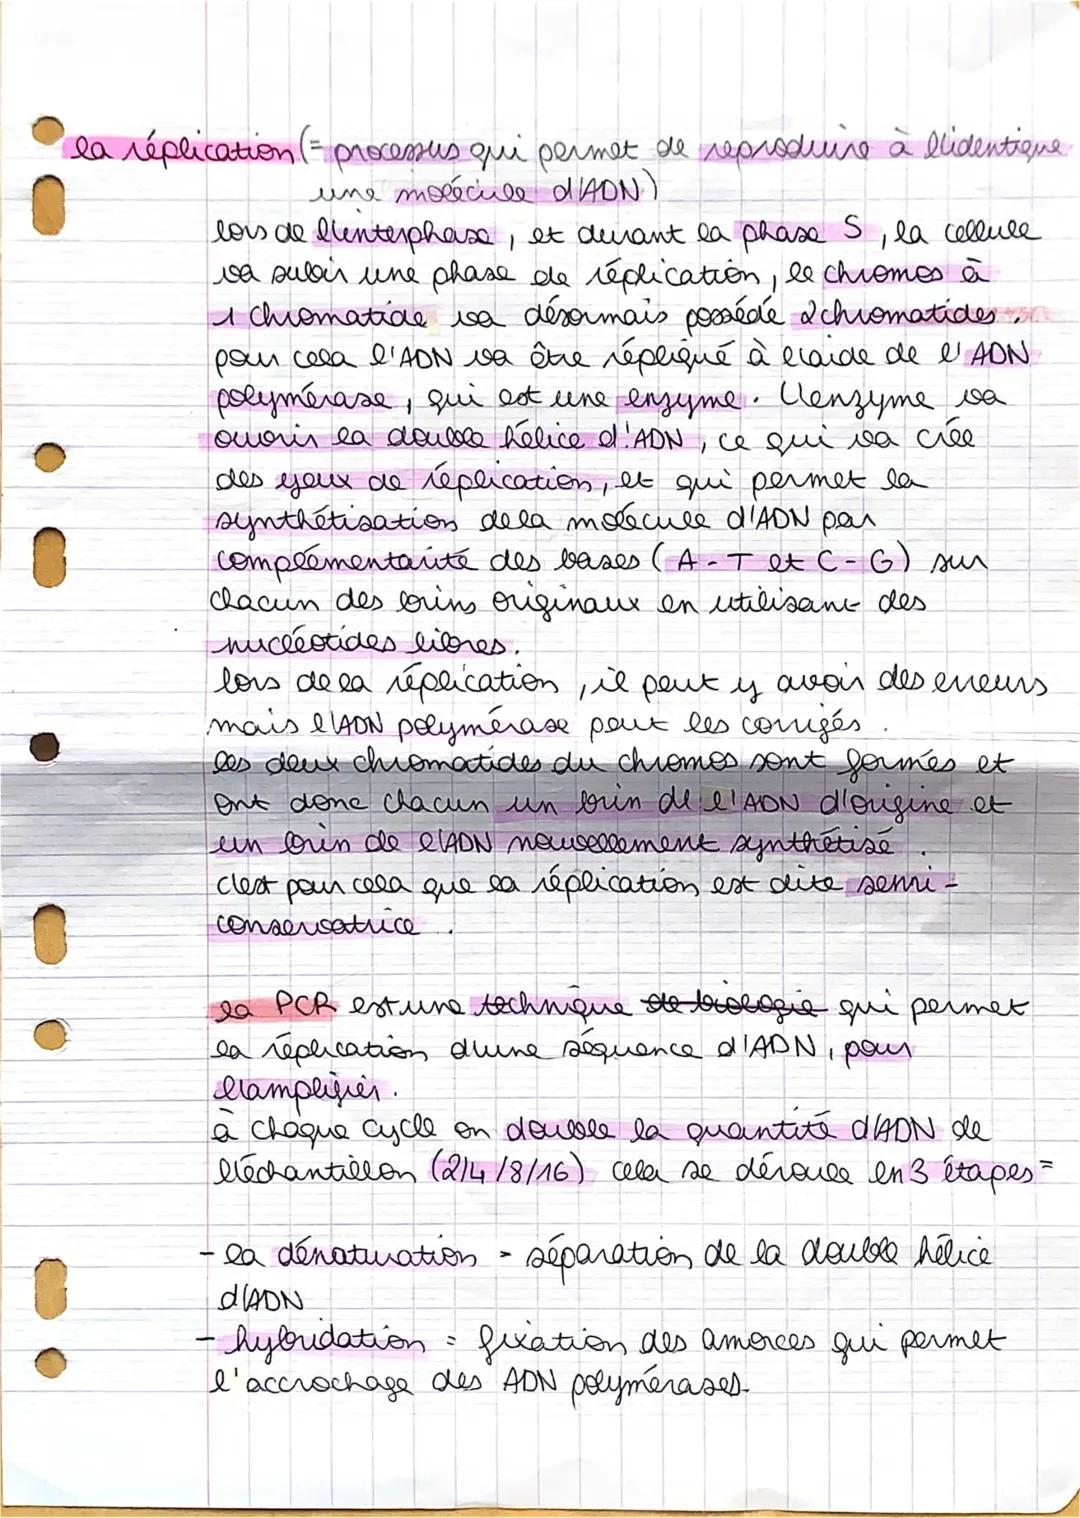 la réplication (= processus qui permet de reproduire à l'identique
une molécule d'ADN)
lors de l'interphase, et durant la phase S, la cellule
va subir une phase de réplication, le chromos à
1 chromatide va désormais possédé 2 chromatides.
pour cela l'ADN va être répliqué à l'aide de l'ADN
polymérase, qui est une enzyme. L'enzyme va
ouvrir la double hélice d'ADN, ce qui va crée
des yeux de réplication, et qui permet la
synthétisation de la molécule d'ADN par
complémentarité des bases (A-T et C-G) sur
chacun des brins originaux en utilisant des
nucléotides libres.
lors de la réplication, il peut y avoir des erreurs
mais l'ADN polymérase peut les corrigés.
les deux chromatides du chromos sont formés et
ont donc chacun un brin de l'ADN d'origine et
un brin de l'ADN nouvellement synthétisé.
c'est pour cela que la réplication est dite semi-
conservatrice.
la PCR est une technique de biologie qui permet
la réplication d'une séquence d'ADN, pour
l'amplifier.
à chaque cycle on double la quantité d'ADN de
l'échantillon (2/4/8/16) cela se déroule en 3 étapes =
- la dénaturation - séparation de la double hélice
d'ADN
- hybridation = fixation des amorces qui permet
l'accrochage des ADN polymérases.